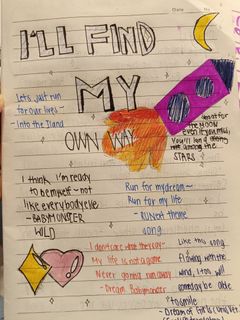 Date
No
I'LL FIND
MY
OWN WAY
Let's just run
for our lives~
Into the Island
Shoot for
the MOON
Even if you miss,
You'll land
among the
STARS
I think I'm ready
to be myself ~ not
like everybody else
- BABYMONSTER
WILD
Run for my dream~
Run for my life
- RUNext theme
song
I don't care what they say~
My life is not a game
Never gonna run away
- Dream Babymonster
Like this song
flowing with the
wind, I too will
someday be able
to smile
- Dream of Girls